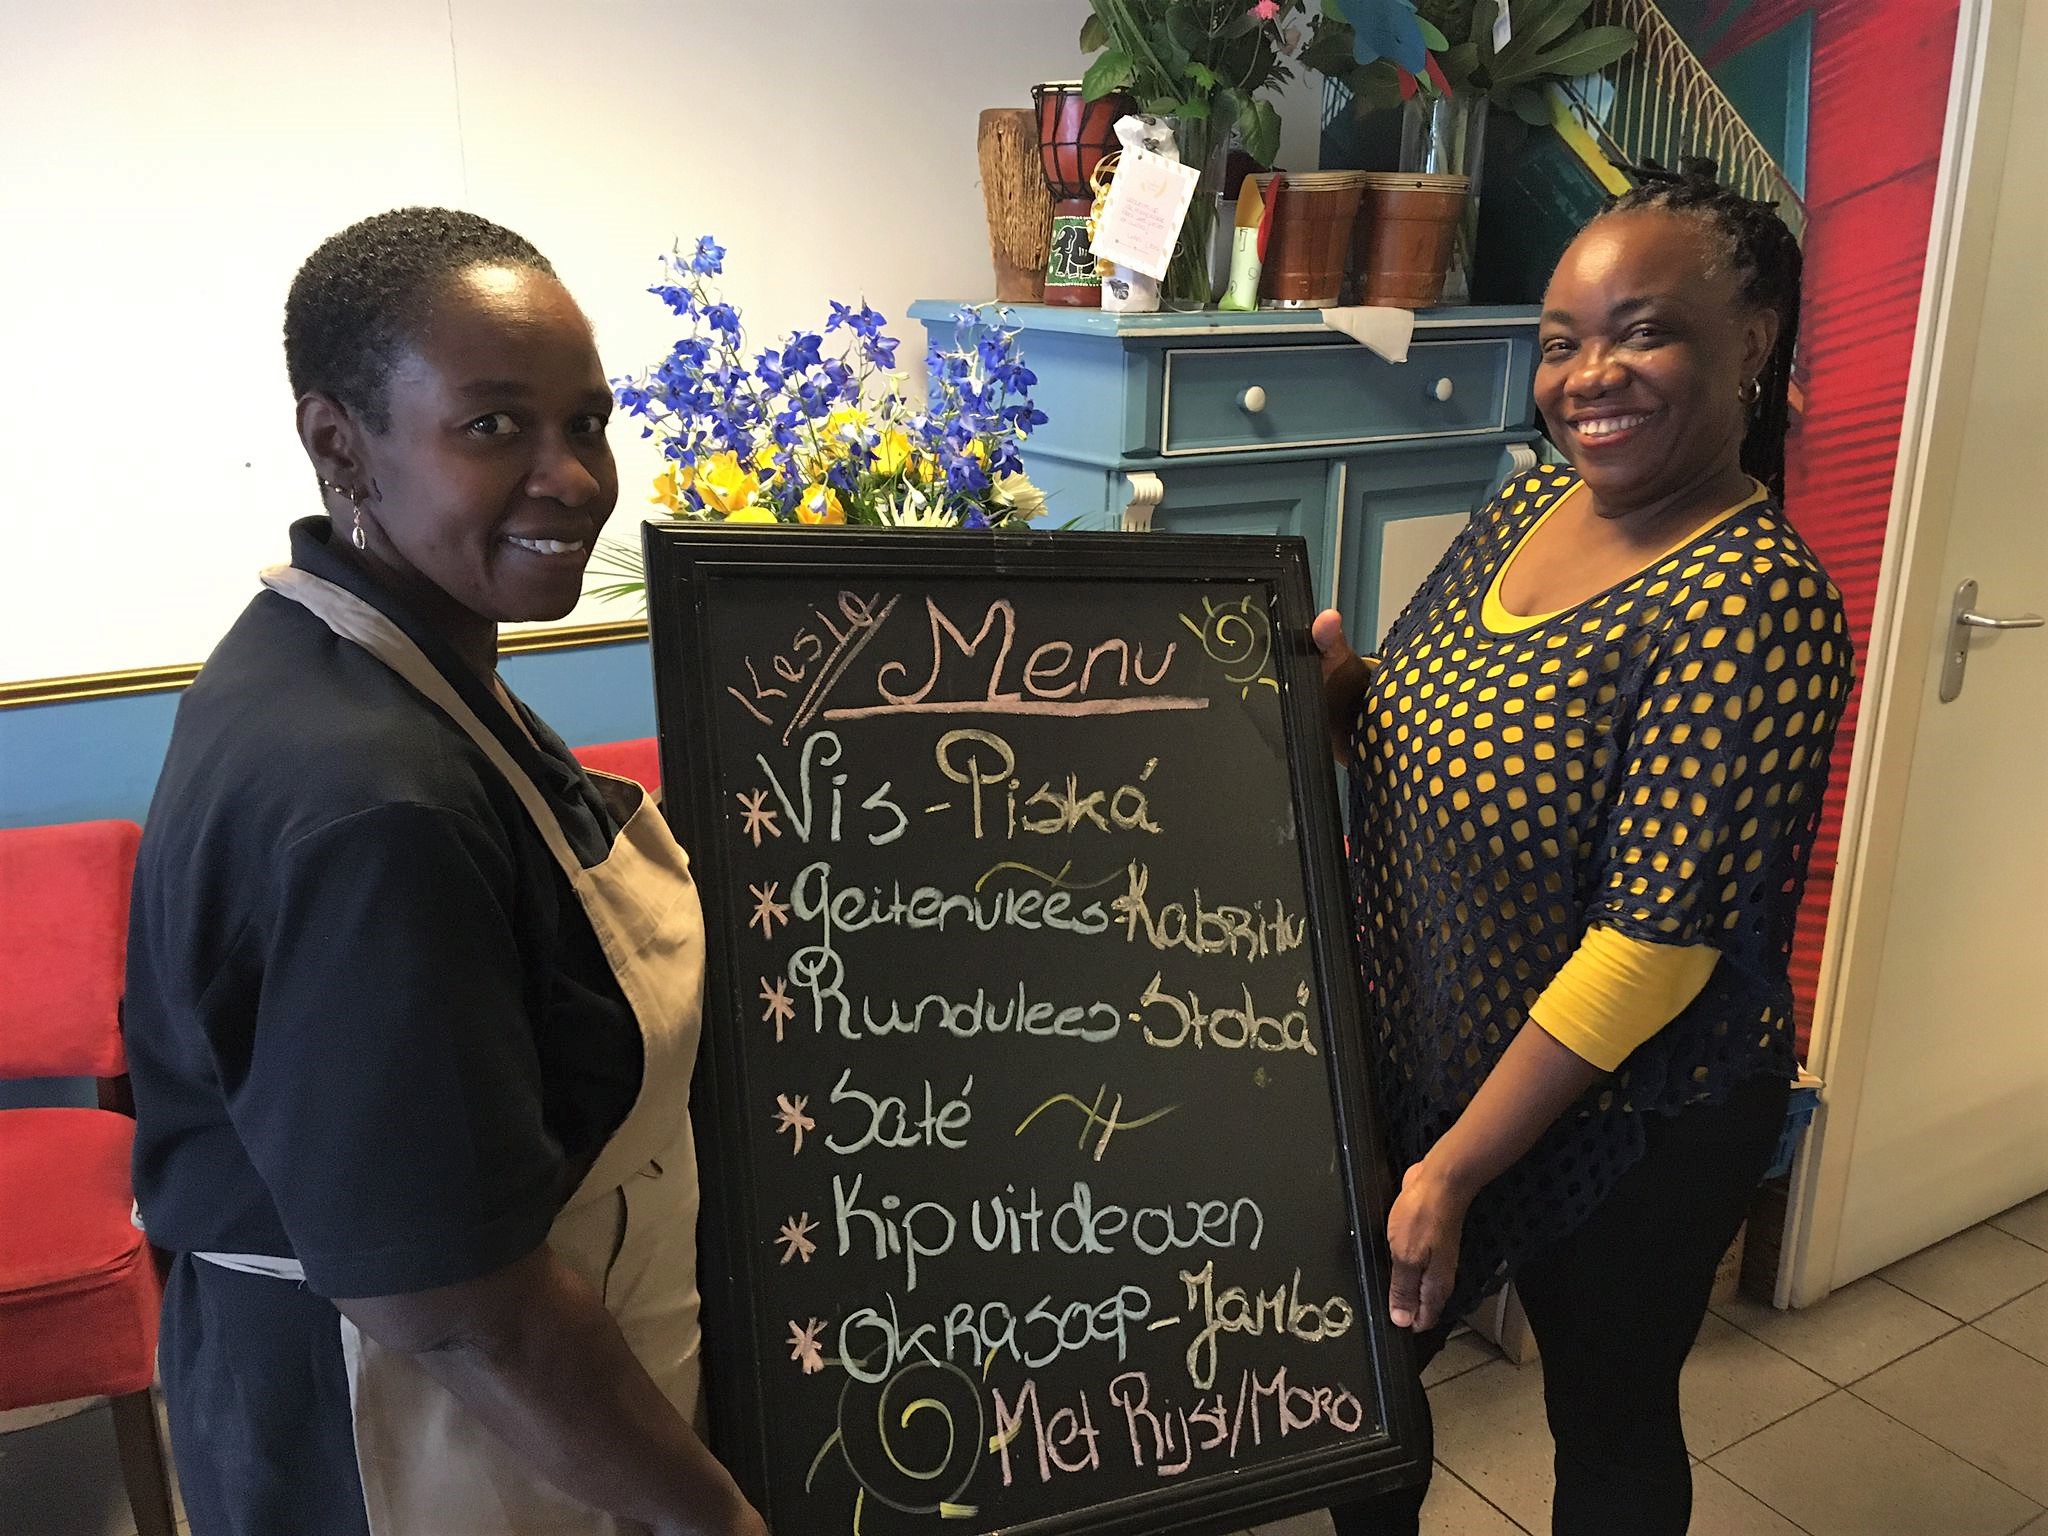 Kesia Menu
* Vis - Piská
* Geitenvlees - Kabritu
* Rundvlees - Stobá
* Saté
* Kip uit de oven
* Okrasoep - Jambo
Met Rijst/Moro